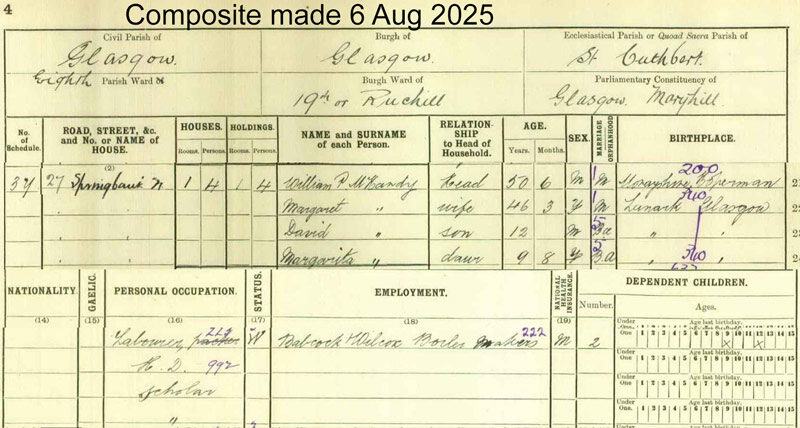 Composite made 6 Aug 2025
4
Civil Parish of
Glasgow.
Eighth Parish Ward
Burgh of
Glasgow.
Ecclesiastical Parish or Quoad Sacra Parish of
St. Cuthbert.
Burgh Ward of
19th or Ruchill
Parliamentary Constituency of
Glasgow. Maryhill.
No. of Schedule.
ROAD, STREET, &c. and No. or NAME of HOUSE.
HOUSES.
Rooms. Persons.
HOLDINGS.
Rooms. Persons.
NAME and SURNAME of each Person.
RELATION-SHIP to Head of Household.
AGE.
Years. Months.
SEX.
MARRIAGE or ORPHANHOOD
BIRTHPLACE.
(2)
37 27 Springbank 1 4 1 4 William P. McHandy Head 50 6 M M Morayshire 200
Margaret " wife 46 3 F M Lanark Glasgow 340
David " son 12 M B.a " "
Margarita " daur 9 8 F B.a " " 340
NATIONALITY. (14)
GAELIC. (15)
PERSONAL OCCUPATION. (16)
STATUS. (17)
EMPLOYMENT. (18)
NATIONAL HEALTH INSURANCE. (19)
DEPENDENT CHILDREN.
Number.
Ages.
Under One Age last birthday.
Labourer, W Babcock & Wilcox Boiler Makers 222 M 2
Under One 1 2 3 4 5 6 7 8 9 10 11 12 13 14 15
H. D. 992
Under One Age last birthday. 1 2 3 4 5 6 7 8 9 10 11 12 13 14 15
Scholar
Under One Age last birthday. 1 2 3 4 5 6 7 8 9 10 11 12 13 14 15
"
Under One Age last birthday. 1 2 3 4 5 6 7 8 9 10 11 12 13 14 15